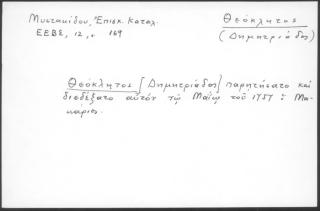 Μυστακίδου, Ἐπισκ. Καταλ.
ΕΕΒΣ, 12, σ. 169
Θεόκλητος
(Δημητριάδος)
Θεόκλητος [Δημητριάδος] παρητήσατο καὶ
διεδέξατο αὐτὸν τῷ Μαΐῳ τοῦ 1757 ὁ Μα-
κάριος.